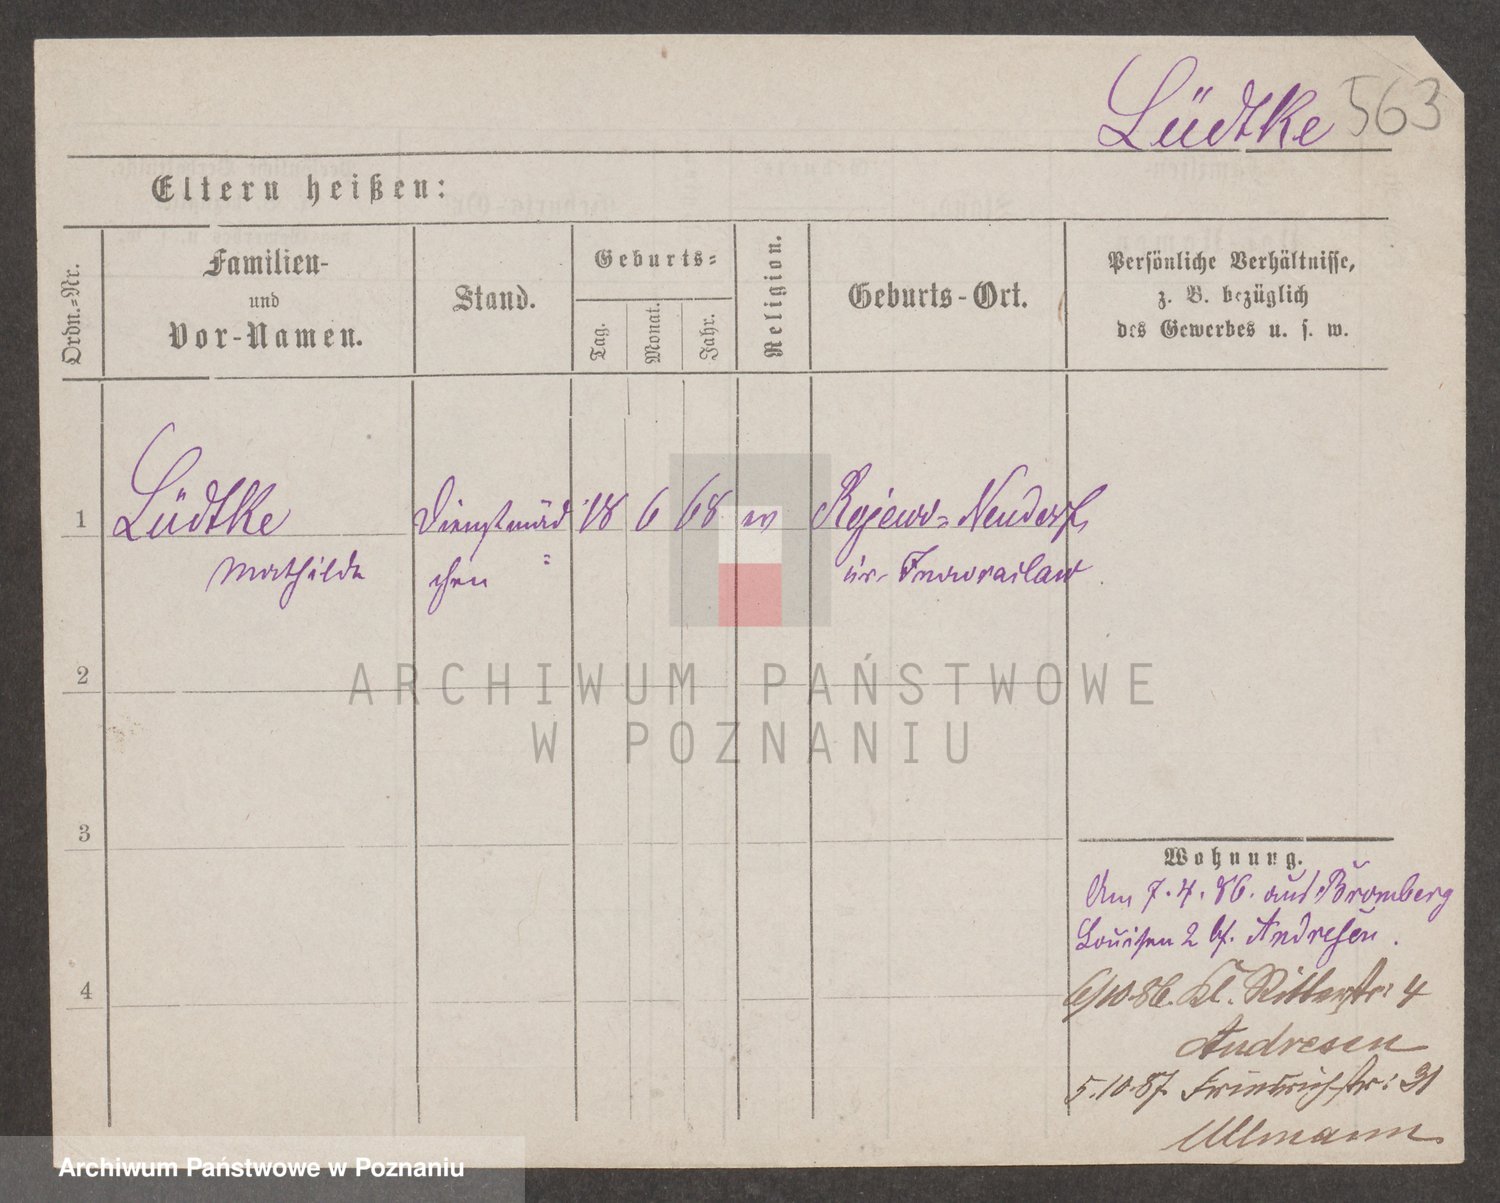 Lüdtke 563
Eltern heißen:
Ordn.-Nr.
Familien-
und
Vor-Namen.
Stand.
Geburts-
Tag.
Monat.
Jahr.
Religion.
Geburts-Ort.
Persönliche Verhältnisse,
z. B. bezüglich
des Gewerbes u. s. w.
1 Lüdtke Dienstmäd 18 6 68 Rojewo-Neudorf,
Mathilde chen Kr. Inowrazlaw
2
3
4
Wohnung.
Am 7.4.86. aus Bromberg
Louisen 2 bf. Andresen.
6/10.86. Kl. Ritterstr: 4
Andresen
5.10.87. Friedrichstr: 31
Ullmann
ARCHIWUM PAŃSTWOWE
W POZNANIU
Archiwum Państwowe w Poznaniu